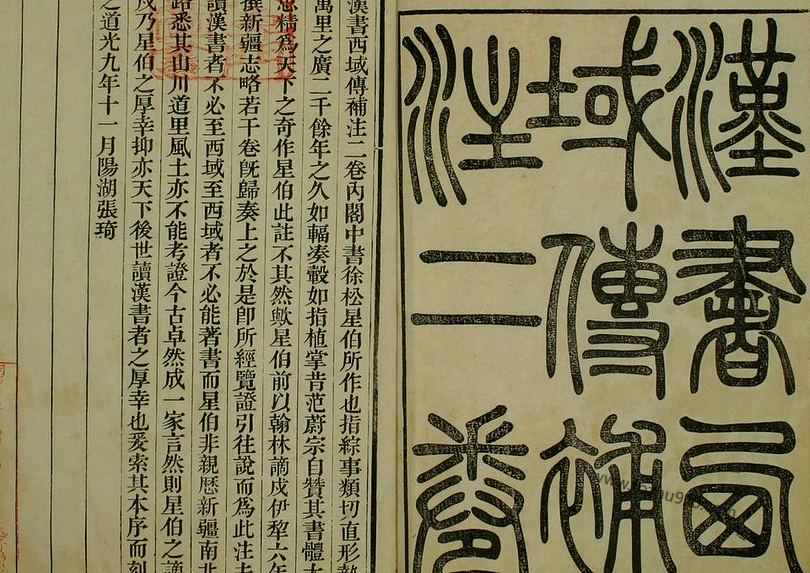 漢書西
域傳補
注二卷
漢書西域傳補注二卷內閣中書徐松星伯所作也指綜事類切直形埶
萬里之廣二千餘年之久如輻凑轂如指植掌昔范蔚宗自贊其書體大
思精爲天下之奇作星伯此註不其然歟星伯前以翰林謫戍伊犂六年
撰新疆志略若干卷旣歸奏上之於是卽所經覽證引往說而爲此注夫
讀漢書者不必至西域至西域者不必能著書而星伯非親歷新疆南北
路悉其山川道里風土亦不能考證今古卓然成一家言然則星伯之謫
戍乃星伯之厚幸抑亦天下後世讀漢書者之厚幸也爰索其本序而刻
之道光九年十一月陽湖張琦